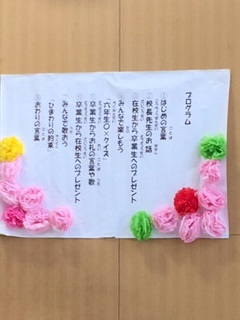 プログラム
はじめの言葉
校長先生のお話
在校生から卒業生へのプレゼント
みんなで楽しもう
「六年生〇×クイズ」
卒業生からお礼の言葉や歌
卒業生から在校生へのプレゼント
みんなで歌おう
「ひまわりの約束」
おわりの言葉